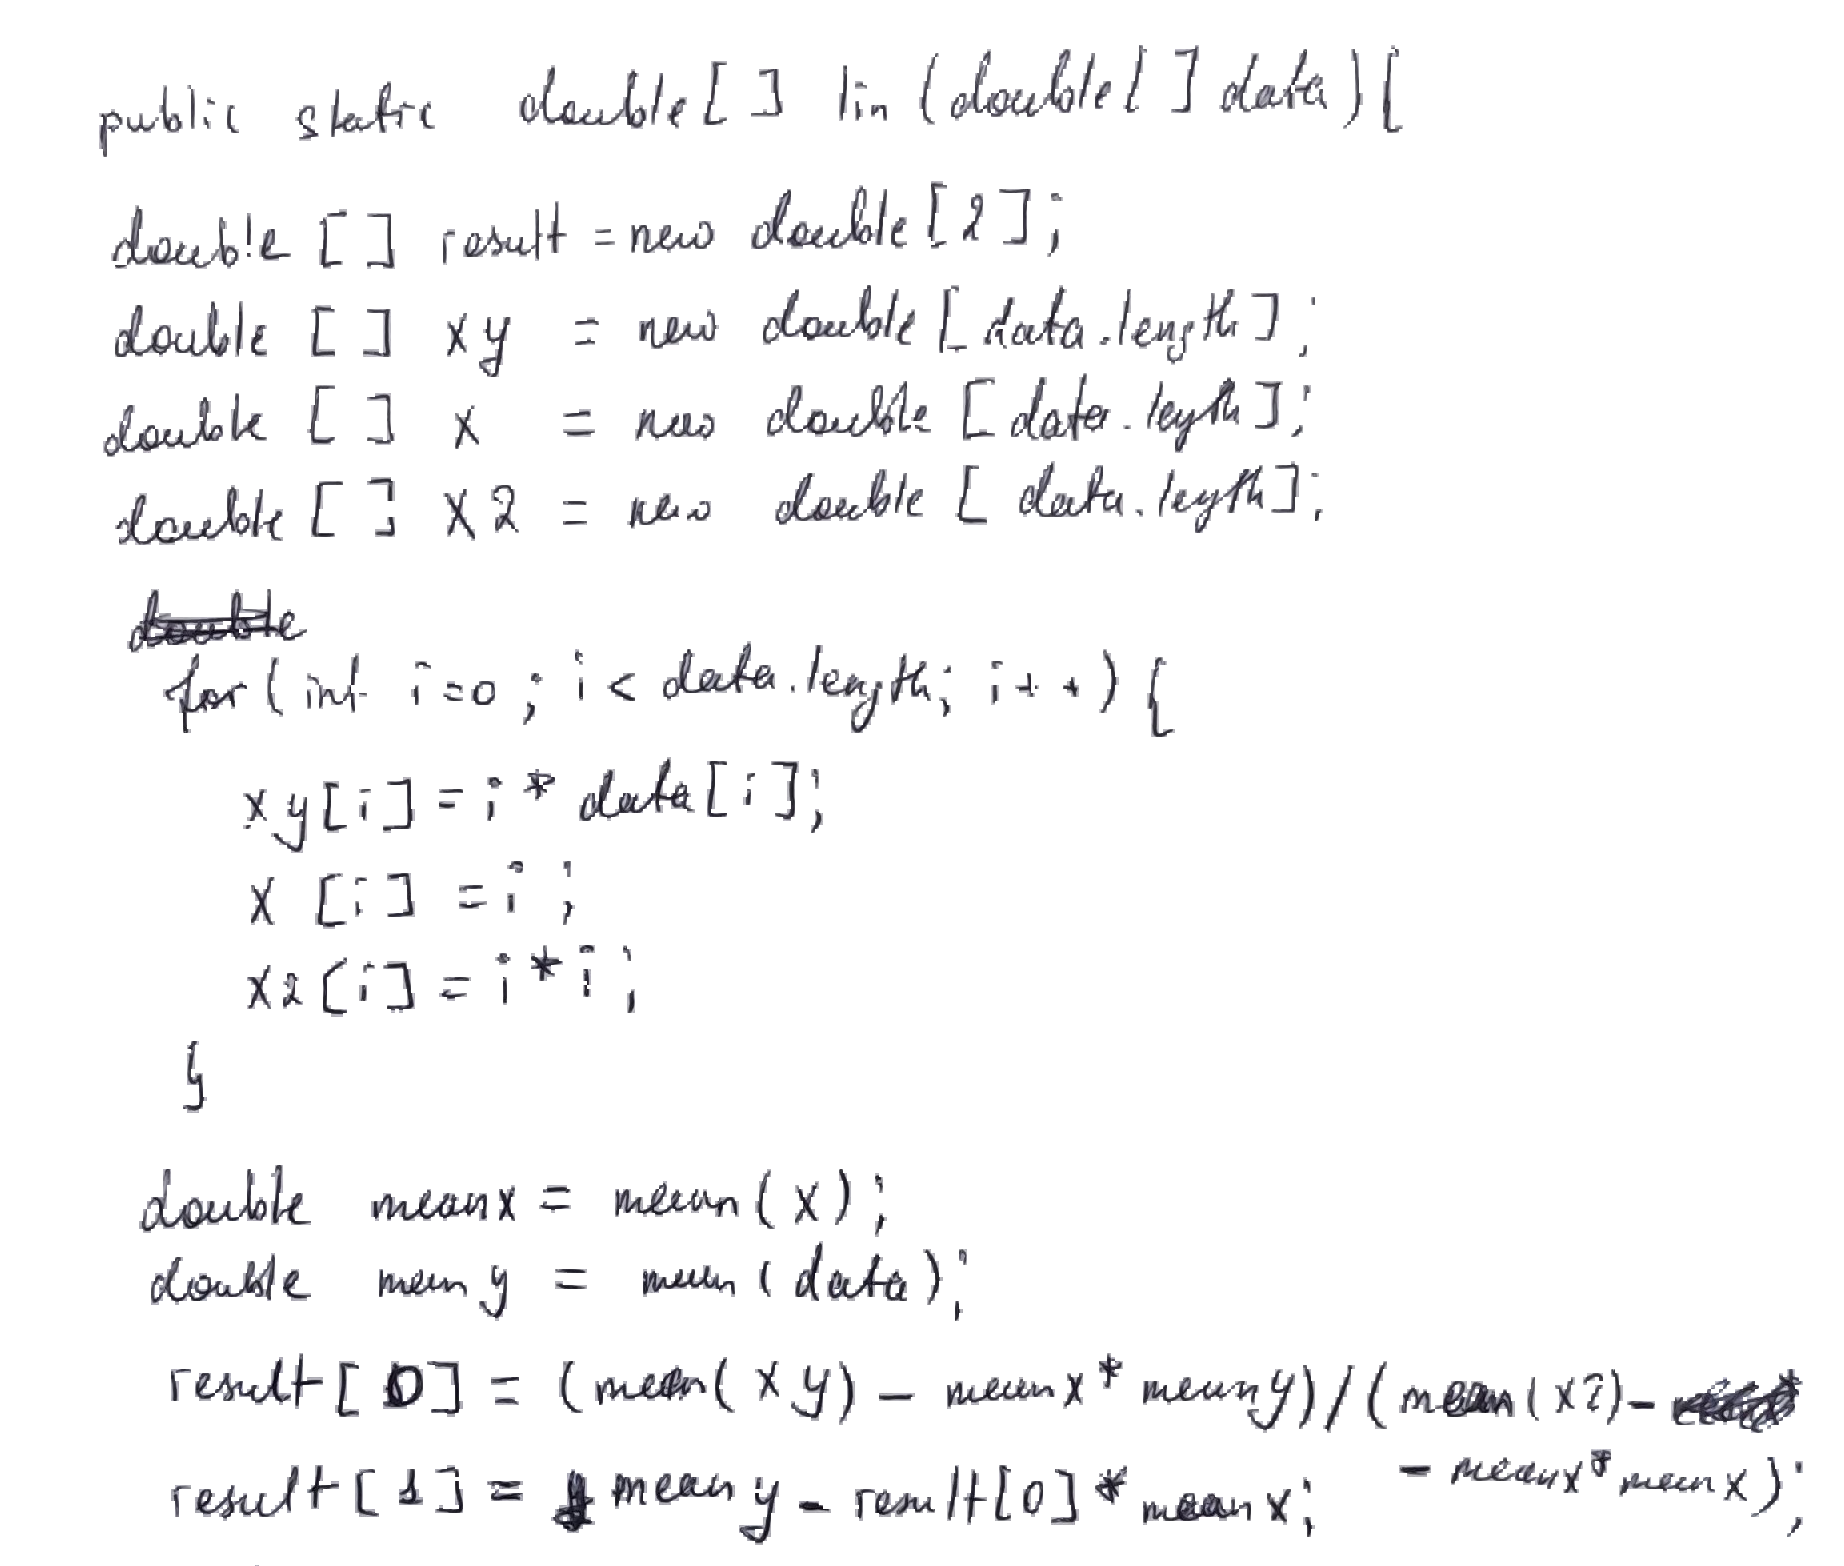 public static double[] lin (double[] data) {
double [] result = new double [2];
double [] xy = new double [data.length];
double [] x = new double [data.length];
double [] x2 = new double [data.length];
double
for (int i=0; i < data.length; i++) {
xy[i] = i * data[i];
x [i] = i;
x2[i] = i * i;
}
double meanx = mean(x);
double meany = mean(data);
result[0] = (mean(xy) - meanx * meany) / (mean(x2) -
- meanx * meanx);
result[1] = meany - result[0] * meanx;